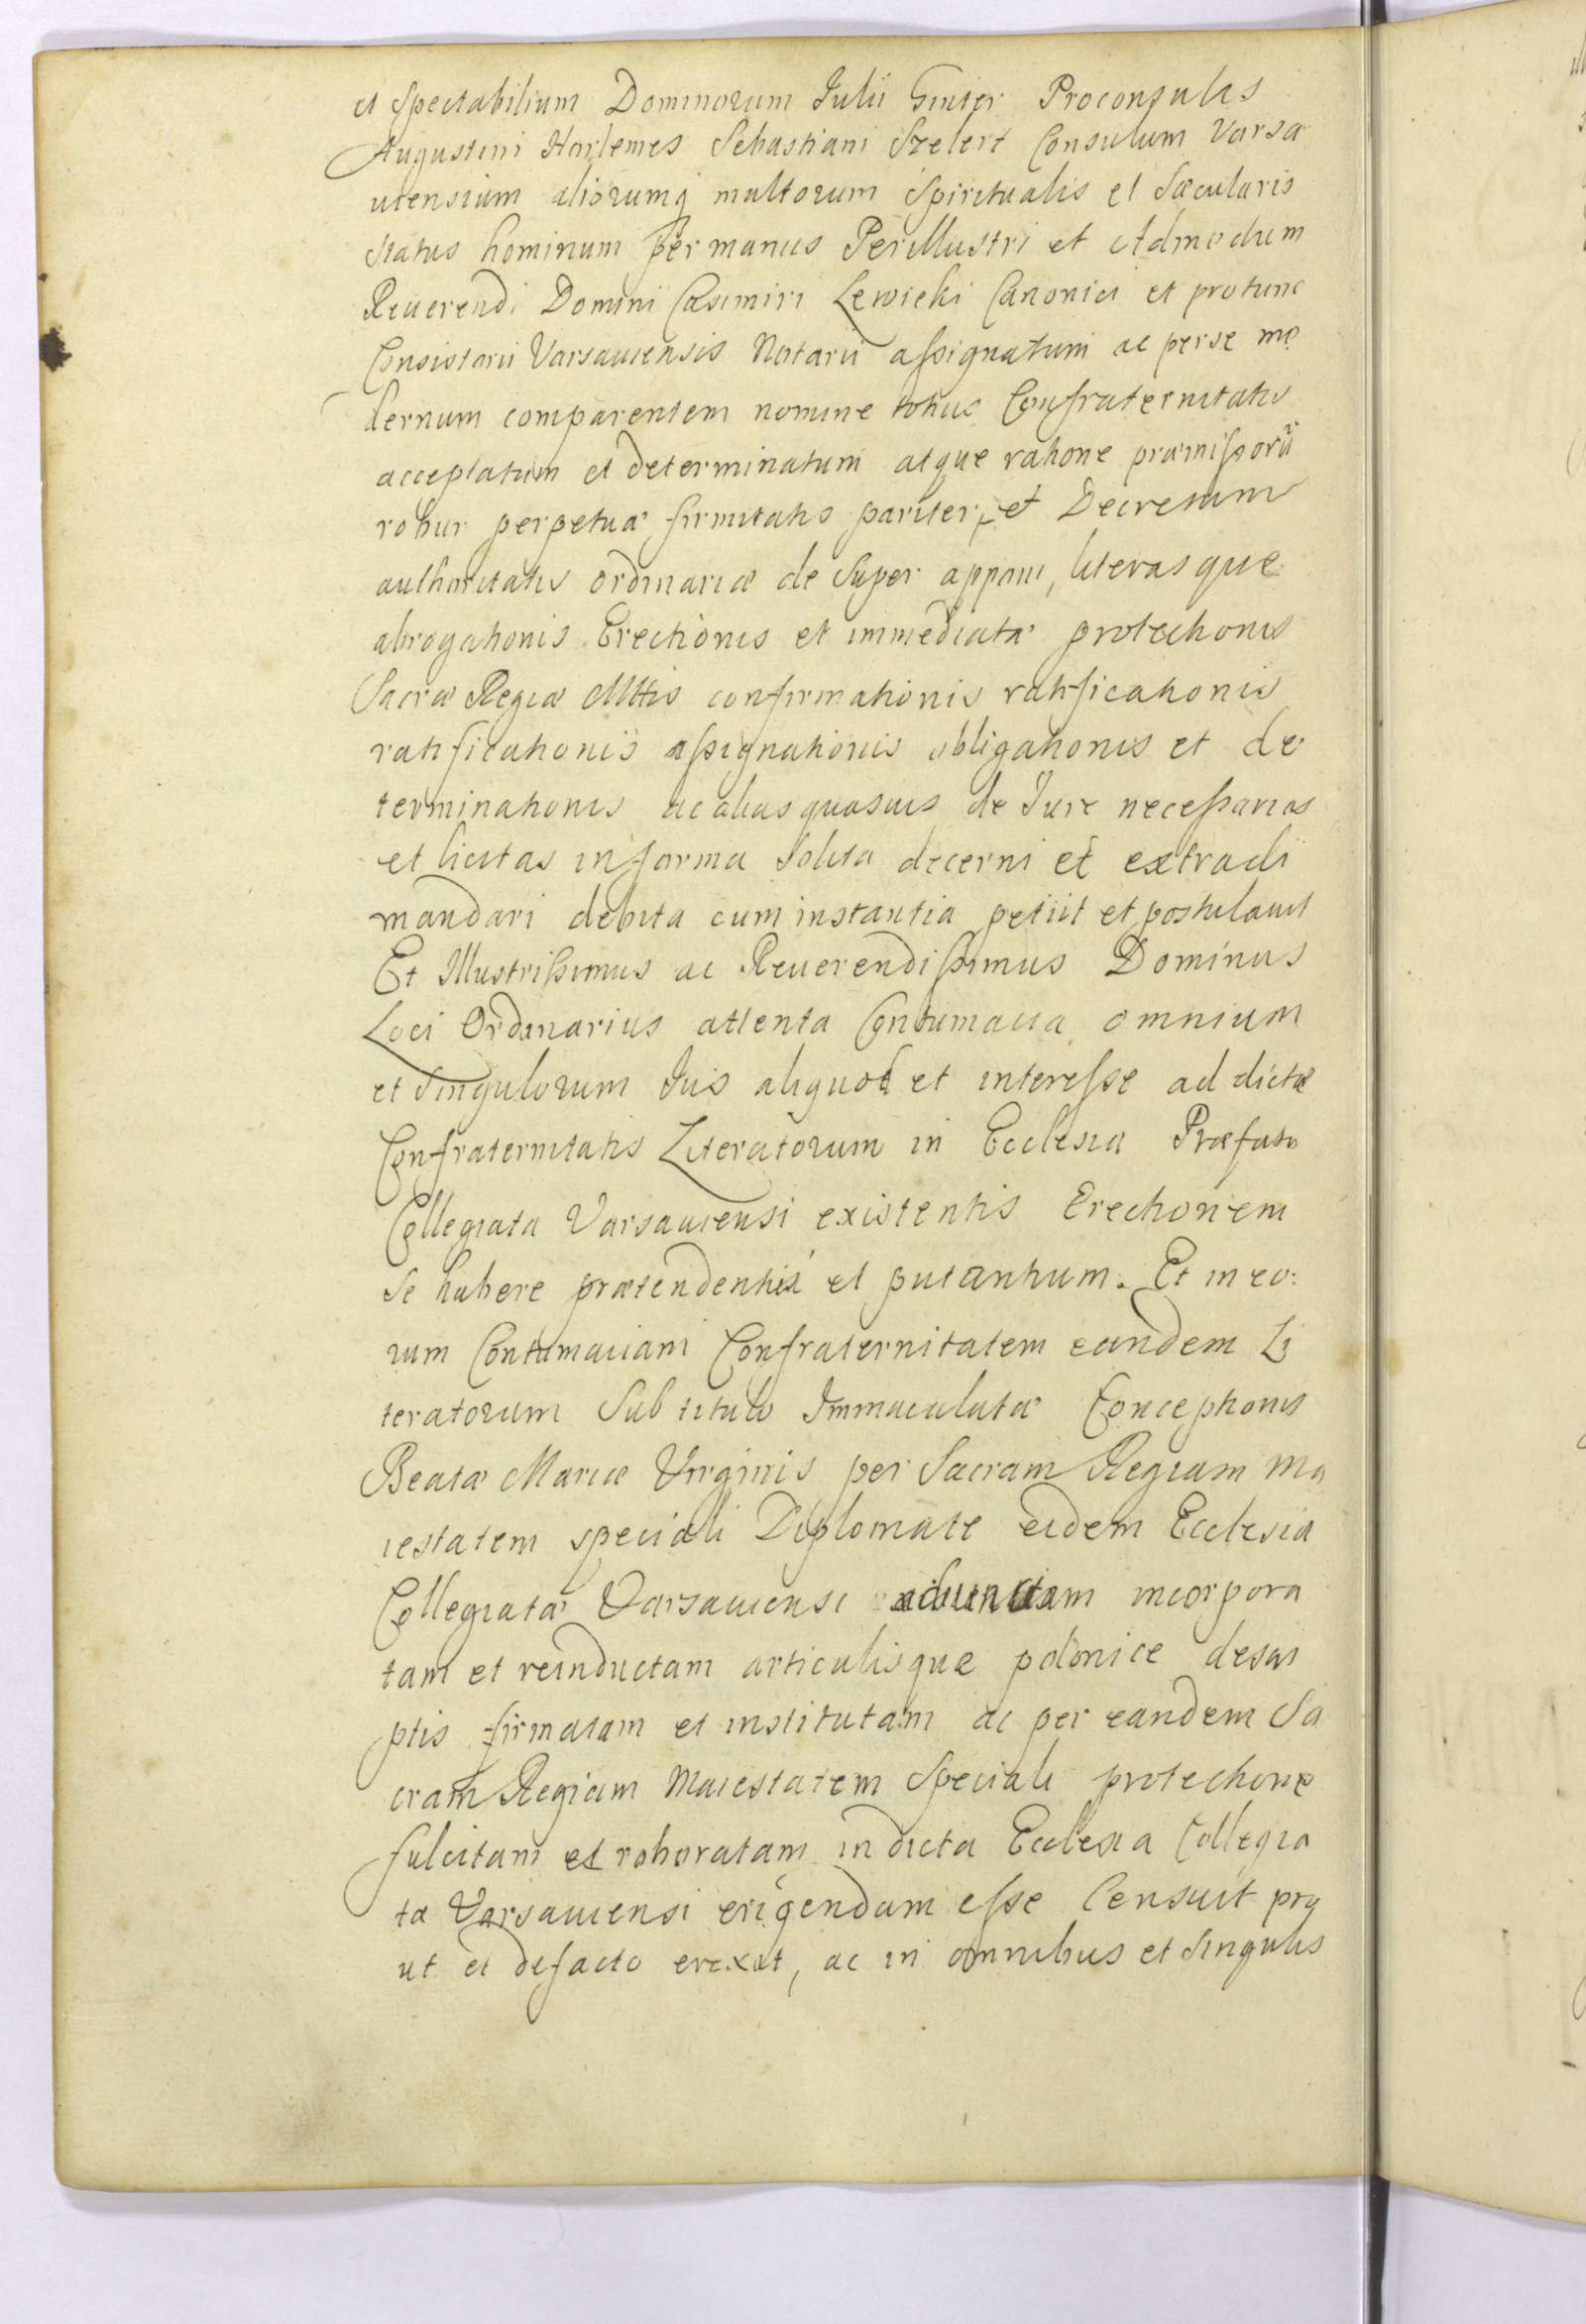 et Spectabilium Dominorum Iulii Ginter Proconsulis
Augustini Harlemes Sebastiani Szelert Consulum Varsa
uiensium aliorumq multorum Spiritualis et Sæcularis
status hominum per manus Perillustri et Admodum
Reuerendi Domini Casimiri Lewicki Canonici et protunc
Consistorii Varsauiensis Notarii assignatum ac per se mo
dernum comparentem nomine totius Confraternitatis
acceptatum et determinatum atque ratione præmissorũ
robur perpetuæ firmitatis pariter et Decretum
authoritatis ordinariæ de super apponi, literasque
abrogationis Erectionis et immediatæ protectionis
Sacræ Regiæ Mttis confirmationis ratificationis
ratificationis assignationis obligationis et de
terminationis ac alias quasuis de Iure necessarias
et licitas in forma solita decerni et extradi
mandari debita cum instantia petiit et postulauit
Et Illustrissimus ac Reuerendissimus Dominus
Loci Ordinarius attenta Contumacia omnium
et Singulorum Ius aliquod et interesse ad dictæ
Confraternitatis Literatorum in Ecclesia Præfata
Collegiata Varsauiensi existentis Erectionem
se habere prætendentis et putantium. Et in eo:
rum Contumaciam Confraternitatem eandem Li
teratorum Sub titulo Immaculatæ Conceptionis
Beatæ Mariæ Virginis per Sacram Regiam Ma
iestatem speciali Diplomate eidem Ecclesiæ
Collegiatæ Varsauiensi adunatam incorpora
tam et reinductam articulisque polonice descri
ptis firmatam et institutam ac per eandem Sa
cram Regiam Maiestatem Speciali protectione
fulcitam et roboratam in dicta Ecclesia Collegia
ta Varsauiensi erigendam esse Censuit pro
ut et defacto erexit, ac in omnibus et Singulis